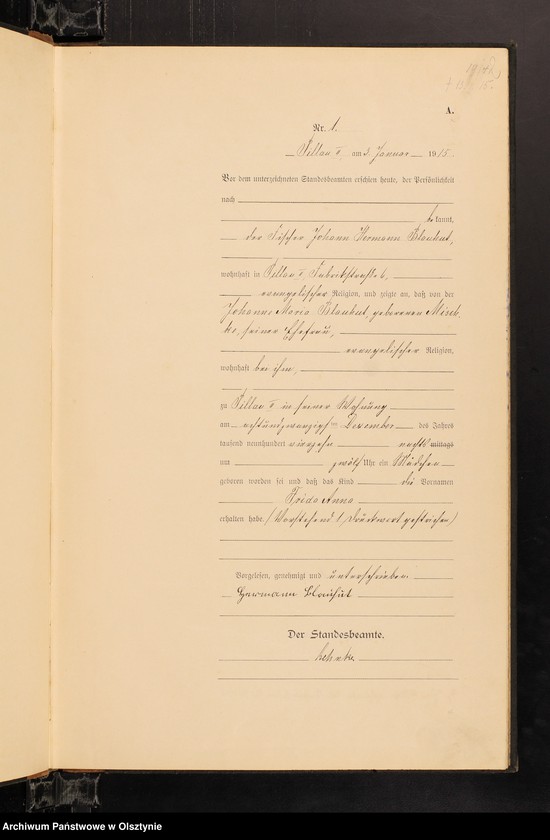 A.
Nr. 1.
Pillau I, am 3. Januar 1915.
Vor dem unterzeichneten Standesbeamten erschien heute, der Persönlichkeit
nach
bekannt,
der Fischer Johann Hermann Blauhut,
wohnhaft in Pillau I, Fabrikstraße 6,
evangelischer Religion, und zeigte an, daß von der
Johanna Maria Blauhut, geborenen
seiner Ehefrau,
evangelischer Religion,
wohnhaft bei ihm,
zu Pillau I in seiner Wohnung
am achtundzwanzigsten Dezember des Jahres
tausend neunhundert vierzehn nachts mittags
um zwölf Uhr ein Mädchen
geboren worden sei und daß das Kind die Vornamen
Frida Anna
erhalten habe. (Vorstehend 1 Druckwort gestrichen)
Vorgelesen, genehmigt und unterschrieben
Hermann Blauhut
Der Standesbeamte.
Archiwum Państwowe w Olsztynie